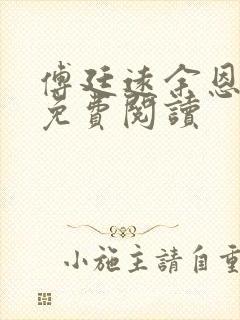 傅廷遠余恩
免費閱讀
小施主請自重